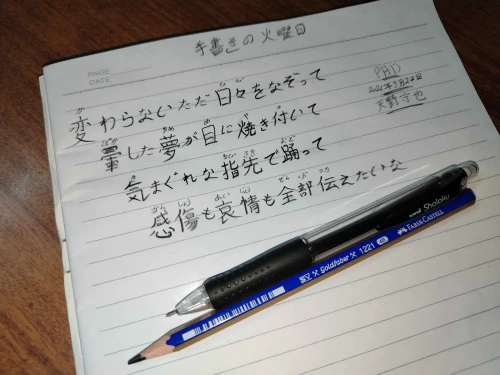 手書きの火曜日
PAGE
DATE
変わらないただ日々をなぞって
暈した夢が目に焼き付いて
気まぐれな指先で踊って
感傷も哀情も全部伝えたいな
天野守也
uni Shalaku
Goldfaber 1221 FABER-CASTELL